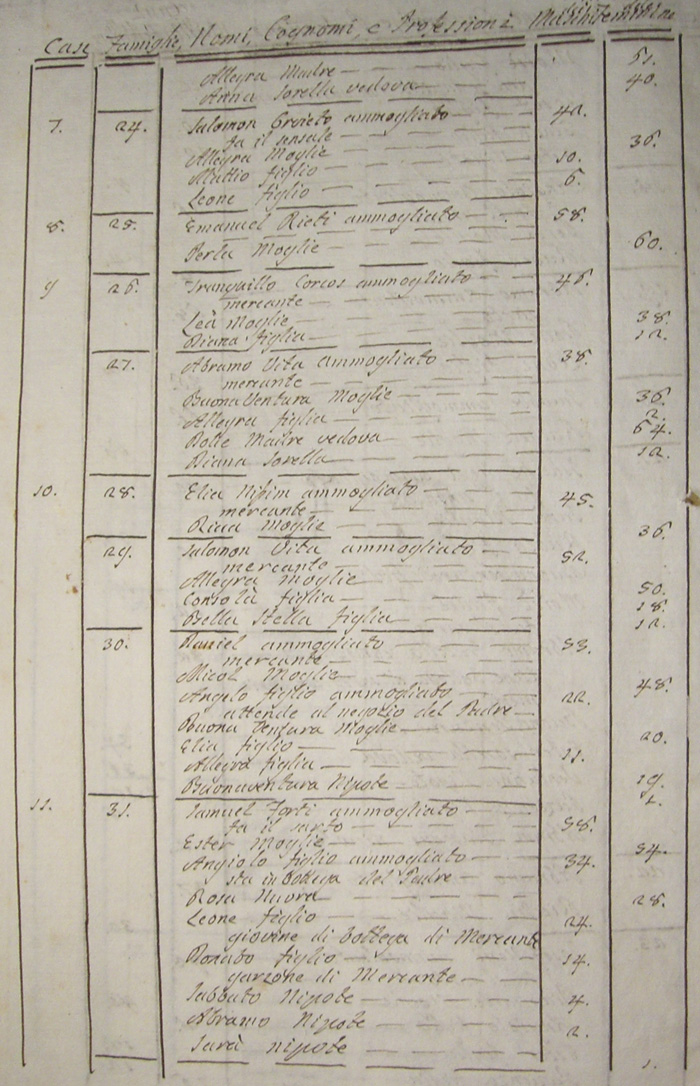 Case Famiglie, Nomi, Cognomi, e Professioni Maschi Femmine
Allegra Madre 51.
Anna Sorella vedova 40.
7. 24. Salomon Orvieto ammogliato 42.
fa il sensale
Allegra Moglie 36.
Mattio figlio 10.
Leone figlio 6.
8. 25. Emanuel Rieti ammogliato 58.
Perla Moglie 60.
9 26. Tranquillo Corcos ammogliato 46.
mercante
Lea Moglie 38.
Diana figlia 12.
27. Abramo Vita ammogliato 38.
mercante
Buona Ventura Moglie 36.
Allegra figlia 2.
Dolle Madre vedova 64.
Diana Sorella 12.
10. 28. Elia ammogliato 45.
mercante
Moglie 36.
29. Salomon Vita ammogliato 52.
mercante
Allegra moglie 50.
Consola figlia 18.
Bella Stella figlia 12.
30. Daniel ammogliato 53.
mercante
Micol Moglie 48.
Angelo figlio ammogliato 22.
attende al negozio del Padre
Buona Ventura Moglie 20.
Elia figlio 11.
Allegra figlia 19.
Buonaventura Nipote 1.
11. 31. Samuel Forti ammogliato 58.
fa il sarto
Ester Moglie 54.
Angiolo figlio ammogliato 34.
sta in bottega del Padre
Rosa Nuora 28.
Leone figlio 24.
giovine di bottega di Mercante
Donato figlio 14.
garzone di Mercante
Sabbato Nipote 4.
Abramo Nipote 2.
Sara nipote 1.